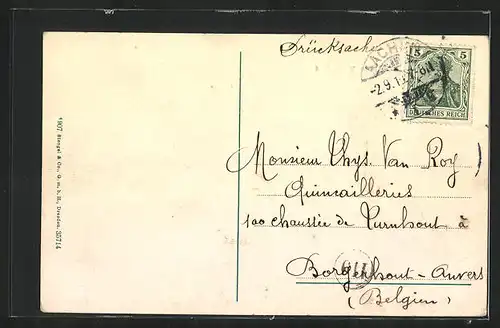 Drücksache
AACHEN
5 5
2.9.1
DEUTSCHES REICH
Monsieur Thys. Van Roy
Quincailleries
100 chaussée de Turnhout à
Borgerhout-Anvers
(Belgien)
1907 Stengel & Co., G. m. b. H., Dresden. 35714